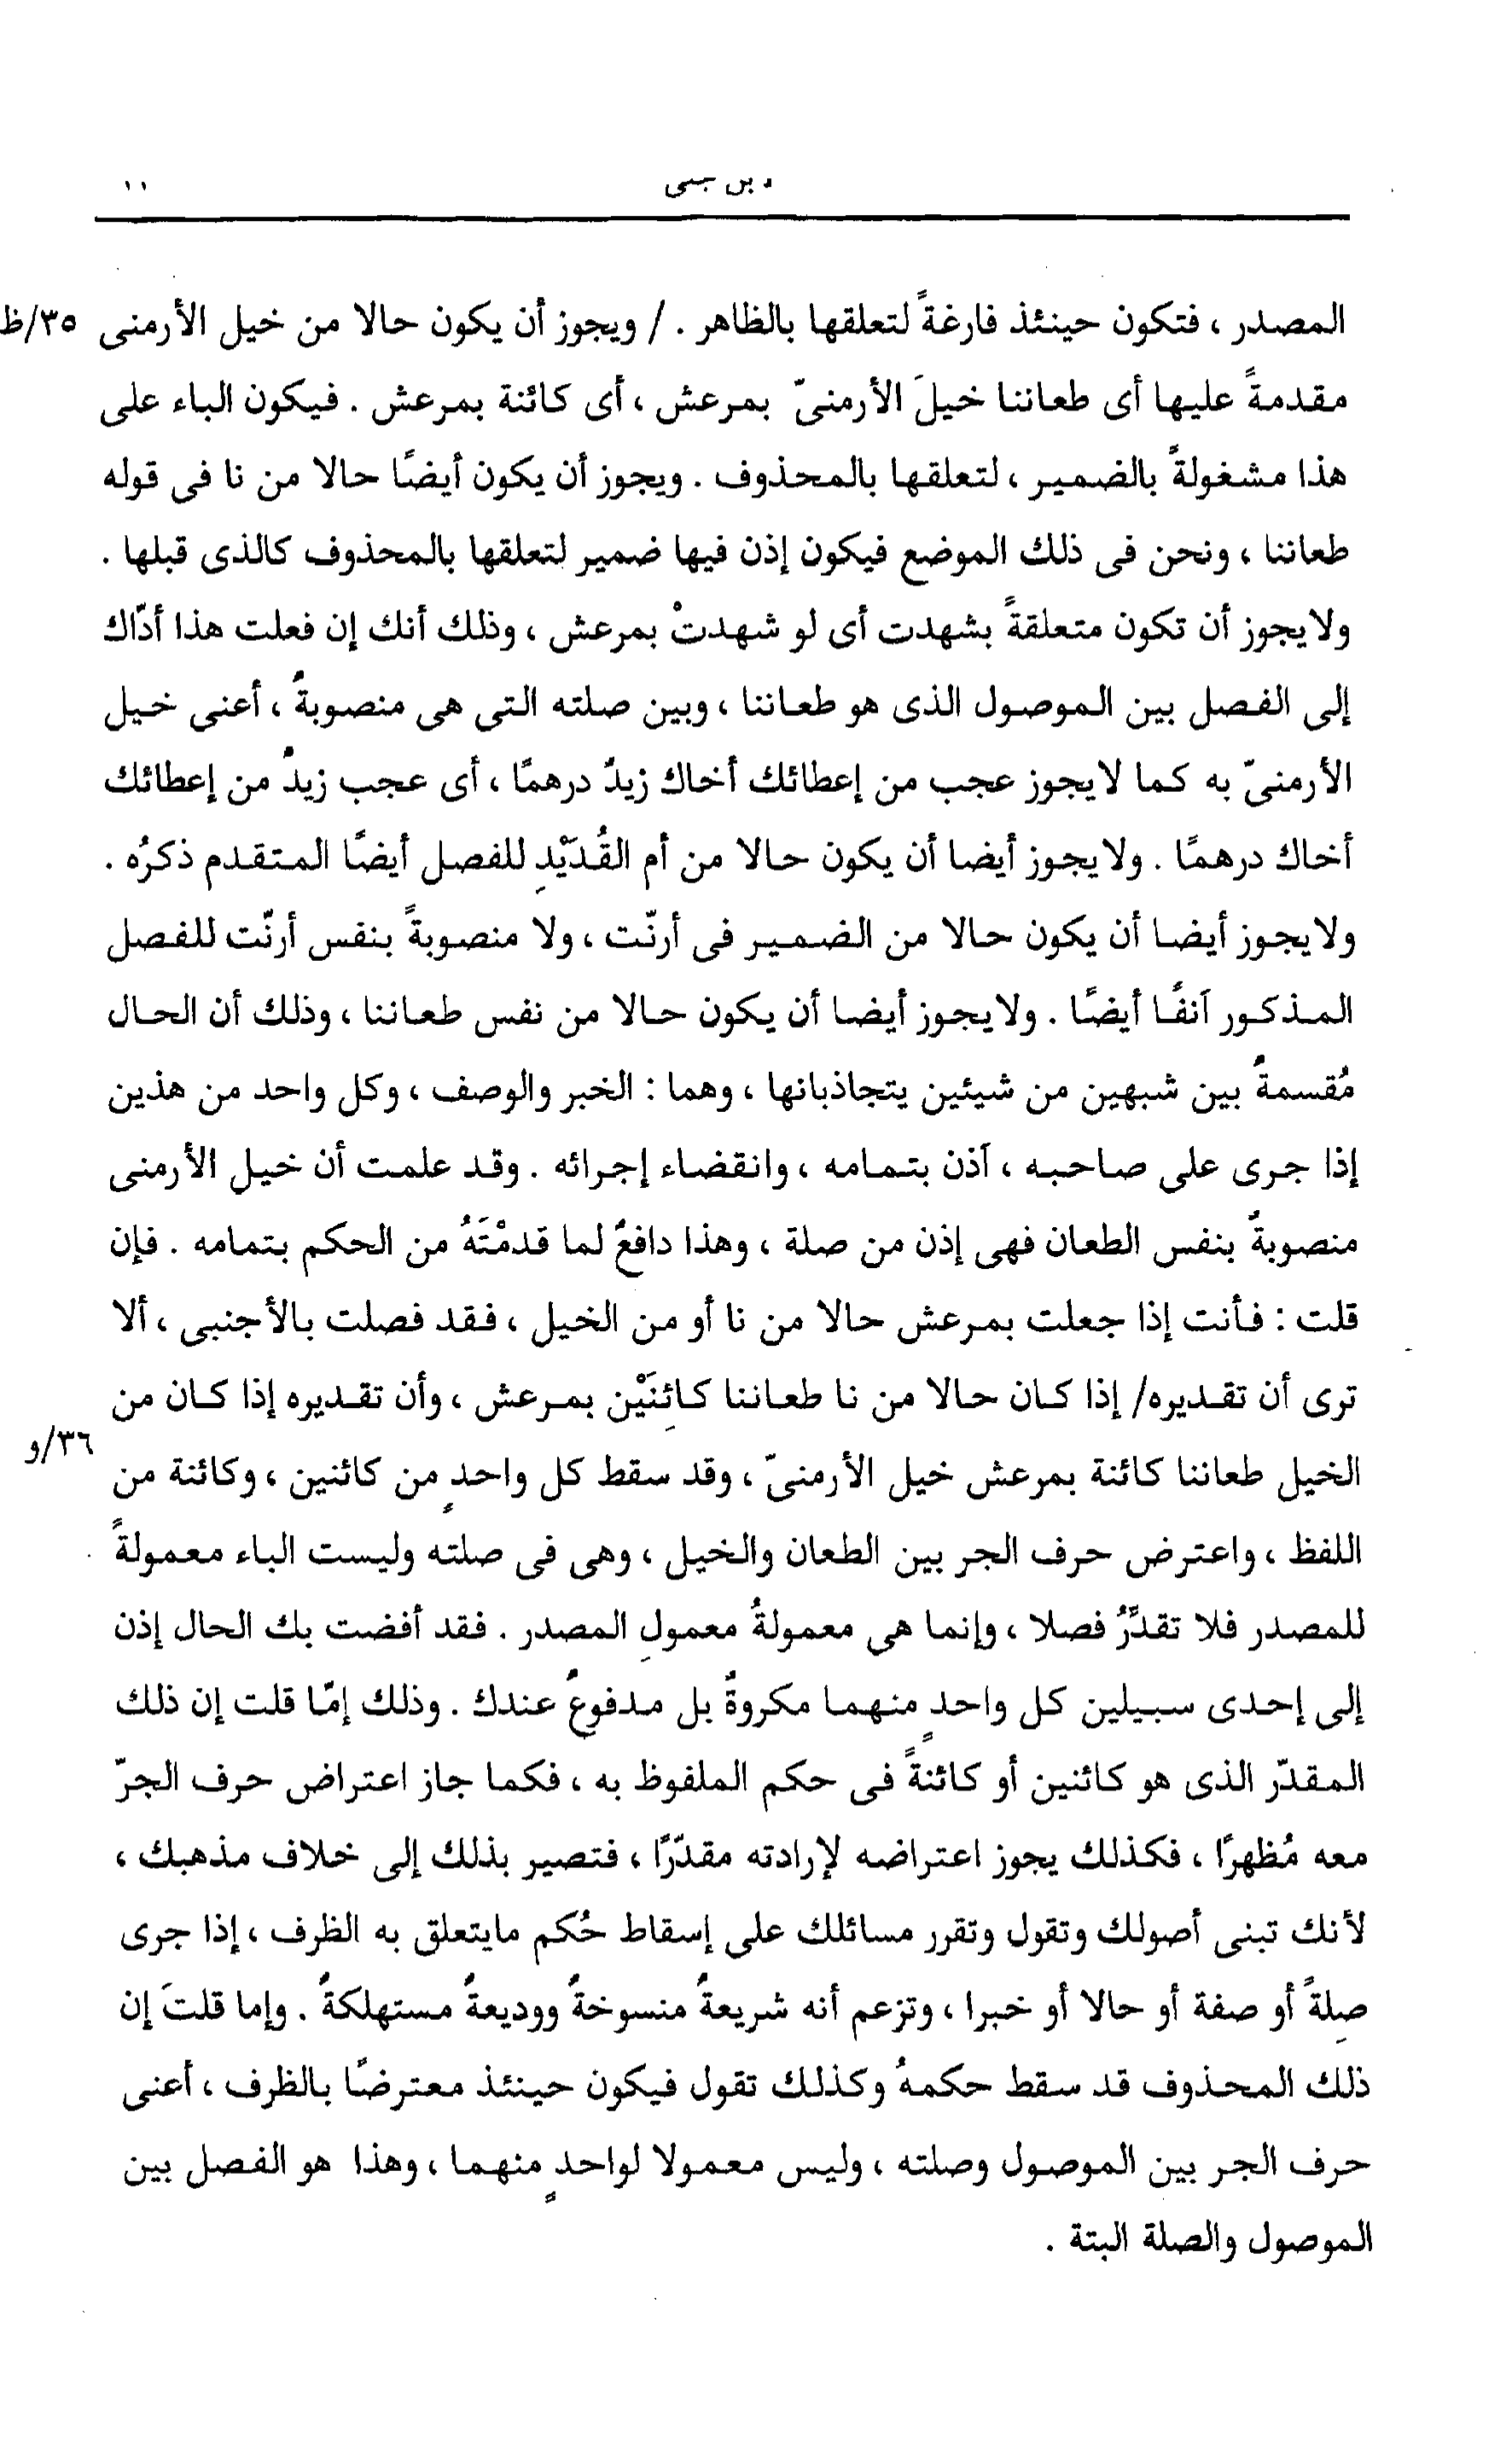 المصدر ، فتكون حينئذ فارغةً لتعلقها بالظاهر . / ويجوز أن يكون حالا من خيل الأرمنى ٣٥/ظ
مقدمةً عليها أى طعاننا خيلَ الأرمنىّ بمرعش ، أى كائنة بمرعش . فيكون الباء على
هذا مشغولةً بالضمير ، لتعلقها بالمحذوف . ويجوز أن يكون أيضًا حالا من نا فى قوله
طعاننا ، ونحن فى ذلك الموضع فيكون إذن فيها ضمير لتعلقها بالمحذوف كالذى قبلها .
ولا يجوز أن تكون متعلقةً بشهدت أى لو شهدتْ بمرعش ، وذلك أنك إن فعلت هذا أدّاك
إلى الفصل بين الموصول الذى هو طعاننا ، وبين صلته التى هى منصوبةٌ ، أعنى خيل
الأرمنىّ به كما لا يجوز عجب من إعطائك أخاك زيدٌ درهمًا ، أى عجب زيدٌ من إعطائك
أخاك درهمًا . ولا يجوز أيضا أن يكون حالا من أم القُدَيْدِ للفصل أيضًا المتقدم ذكرُه .
ولا يجوز أيضا أن يكون حالا من الضمير فى أرنّت ، ولا منصوبةً بنفس أرنّت للفصل
المذكور آنفًا أيضًا . ولا يجوز أيضا أن يكون حالا من نفس طعاننا ، وذلك أن الحال
مُقسمةٌ بين شبهين من شيئين يتجاذبانها ، وهما : الخبر والوصف ، وكل واحد من هذين
إذا جرى على صاحبه ، آذن بتمامه ، وانقضاء إجرائه . وقد علمت أن خيل الأرمنى
منصوبةٌ بنفس الطعان فهى إذن من صلة ، وهذا دافعٌ لما قدمْتَهُ من الحكم بتمامه . فإن
قلت : فأنت إذا جعلت بمرعش حالا من نا أو من الخيل ، فقد فصلت بالأجنبى ، ألا
ترى أن تقديره/ إذا كان حالا من نا طعاننا كائِنَيْن بمرعش ، وأن تقديره إذا كان من
٣٦/و
الخيل طعاننا كائنة بمرعش خيل الأرمنىّ ، وقد سقط كل واحدٍ من كائنين ، وكائنة من
اللفظ ، واعترض حرف الجر بين الطعان والخيل ، وهى فى صلته وليست الباء معمولةً
للمصدر فلا تقدَّرُ فصلا ، وإنما هى معمولةُ معمولِ المصدر . فقد أفضت بك الحال إذن
إلى إحدى سبيلين كل واحدٍ منهما مكروهٌ بل مدفوعٌ عندك . وذلك إمّا قلت إن ذلك
المقدّر الذى هو كائنين أو كائنةً فى حكم الملفوظ به ، فكما جاز اعتراض حرف الجرّ
معه مُظهرًا ، فكذلك يجوز اعتراضه لإرادته مقدّرًا ، فتصير بذلك إلى خلاف مذهبك ،
لأنك تبنى أصولك وتقول وتقرر مسائلك على إسقاط حُكم مايتعلق به الظرف ، إذا جرى
صِلةً أو صفة أو حالا أو خبرا ، وتزعم أنه شريعةٌ منسوخةٌ ووديعةٌ مستهلكةٌ . وإما قلتَ إن
ذلك المحذوف قد سقط حكمهُ وكذلك تقول فيكون حينئذ معترضًا بالظرف ، أعنى
حرف الجر بين الموصول وصلته ، وليس معمولا لواحدٍ منهما ، وهذا هو الفصل بين
الموصول والصلة البتة .